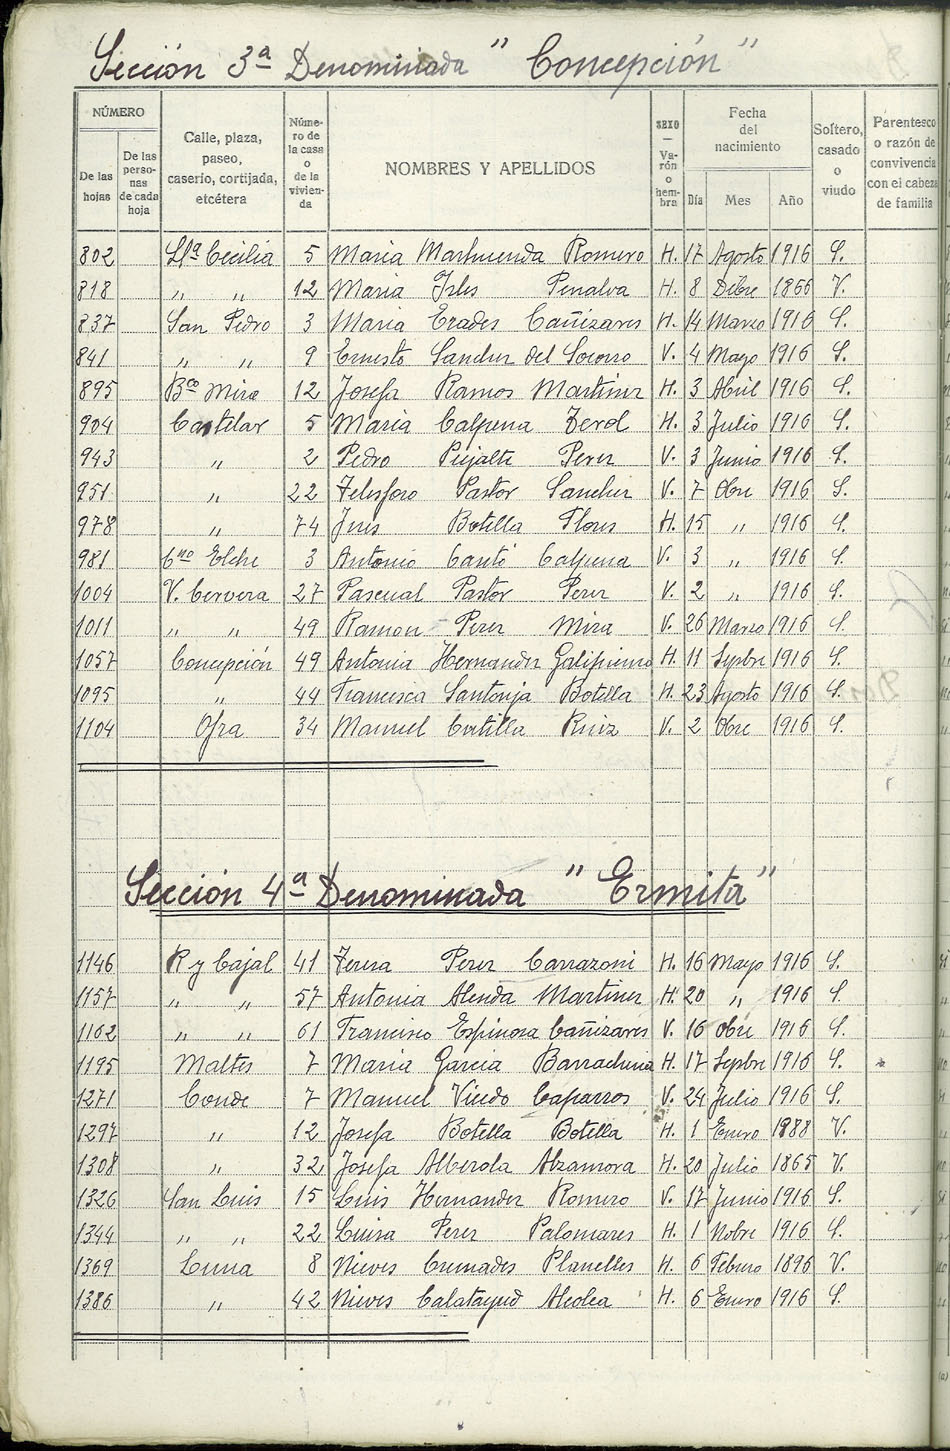 Sección 3ª Denominada "Concepción"
NÚMERO
De las hojas
De las personas de cada hoja
Calle, plaza, paseo, caserío, cortijada, etcétera
Número de la casa o de la vivienda
NOMBRES Y APELLIDOS
SEXO — Varón o hembra
Fecha del nacimiento
Día Mes Año
Soltero, casado o viudo
Parentesco o razón de convivencia con el cabeza de familia
802 Stª Cecilia 5 Maria Marhuenda Romero H. 17 Agosto 1916 S.
818 " " 12 Maria Irles Penalva H. 8 Dibre 1866 V.
837 San Pedro 3 Maria Erades Cañizares H. 14 Marzo 1916 S.
841 " " 9 Ernesto Sanchez del Socorro V. 4 Mayo 1916 S.
895 Bco Mira 12 Josefa Ramos Martinez H. 3 Abril 1916 S.
904 Castelar 5 Maria Calpena Terol H. 3 Julio 1916 S.
943 " 2 Pedro Pujalte Perez V. 3 Junio 1916 S.
951 " 22 Telesforo Pastor Sanchez V. 7 Obre 1916 S.
978 " 74 Ines Botella Flores H. 15 " 1916 S.
981 Cno Elche 3 Antonio Cantó Calpena V. 3 " 1916 S.
1004 V. Cervera 27 Pascual Pastor Perez V. 2 " 1916 S.
1011 " " 49 Ramon Perez Mira V. 26 Marzo 1916 S.
1057 Concepción 49 Antonia Hernandez H. 11 Sepbre 1916 S.
1095 " 44 Francisca Santonja Botella H. 23 Agosto 1916 S.
1104 Ofra 34 Manuel Ruiz V. 2 Obre 1916 S.
Sección 4ª Denominada "Ermita"
1146 R y Cajal 41 Teresa Perez Carrazoni H. 16 Mayo 1916 S.
1157 " " 57 Antonia Alenda Martinez H. 20 " 1916 S.
1162 " " 61 Francisco Espinosa Cañizares V. 16 Obre 1916 S.
1195 Maltes 7 Maria Garcia Barrachina H. 17 Sepbre 1916 S.
1271 Conde 7 Manuel Viedo Caparros V. 24 Julio 1916 S.
1297 " 12 Josefa Botella Botella H. 1 Enero 1888 V.
1308 " 32 Josefa Alberola Alzamora H. 20 Julio 1865 V.
1326 San Luis 15 Luis Hernandez Romero V. 17 Junio 1916 S.
1344 " " 22 Luisa Perez Palomares H. 1 Nobre 1916 S.
1369 Luna 8 Nieves Cremades Planelles H. 6 Febrero 1896 V.
1386 " 42 Nieves Calatayud Alcolea H. 6 Enero 1916 S.